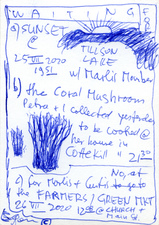 WAITING FOR
a) SUNSET
@
TILLSON
LAKE
25 VII 2020
1951
w/ Marli
b) the Coral Mushroom
Petra & I collected yesterday
to be cooked @
her home in
Cottekill " 21
No, at
c) for Marli &
to go to
the FARMERS / GREEN MKT
26 VII 2020
@ CHURCH &
Main St.